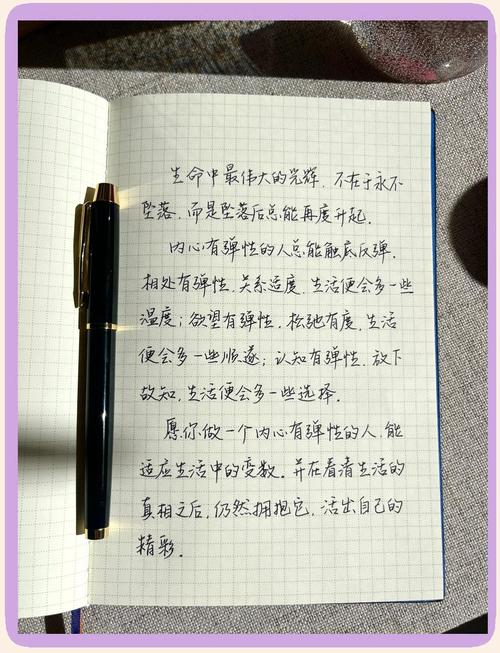 生命中最伟大的光辉,不在于永不
坠落,而是坠落后总能再度升起。
内心有弹性的人总能触底反弹。
相处有弹性,关系适度,生活便会多一些
温度;欲望有弹性,松弛有度,生活
便会多一些顺遂;认知有弹性,放下
故知,生活便会多一些选择。
愿你做一个内心有弹性的人,能
适应生活中的变数。并在看清生活的
真相之后,仍然拥抱它,活出自己的
精彩。